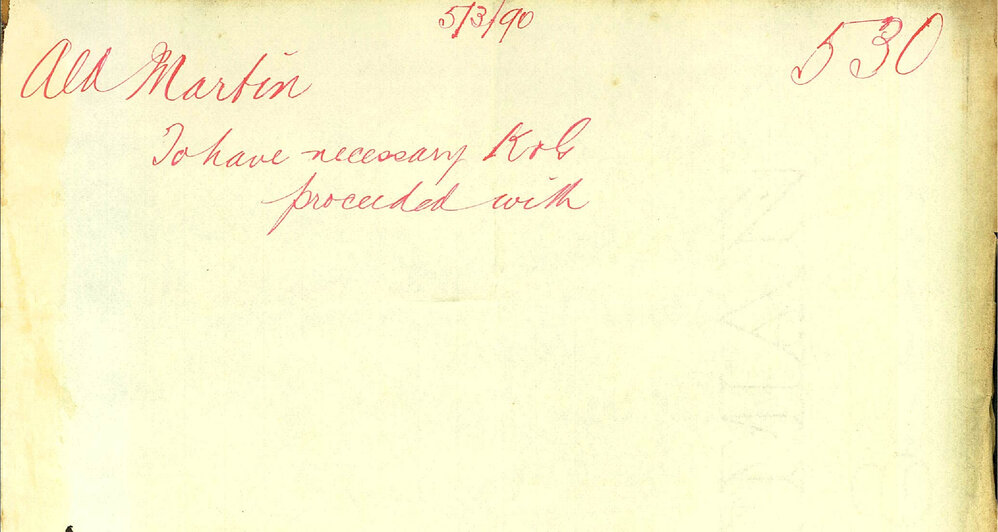 5/3/90
530
Ald Martin
To have necessary K & G
proceeded with